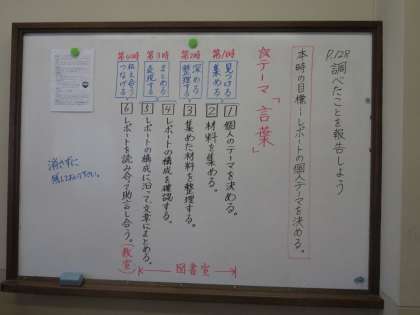 P.128 調べたことを報告しよう
本時の目標―レポートの個人テーマを決める。
☆テーマ「言葉」
第1時
見つける
集める
1 個人のテーマを決める。
2 材料を集める。
第2時
深める
整理する
3 集めた材料を整理する。
第3時
まとめる
表現する
4 レポートの構成を確認する。
5 レポートの構成に沿って、文章にまとめる。
第4時
伝え合う
つなげる
6 レポートを読み合って助言し合う。(教室)
図書室
消さずに
残しておいて下さい。